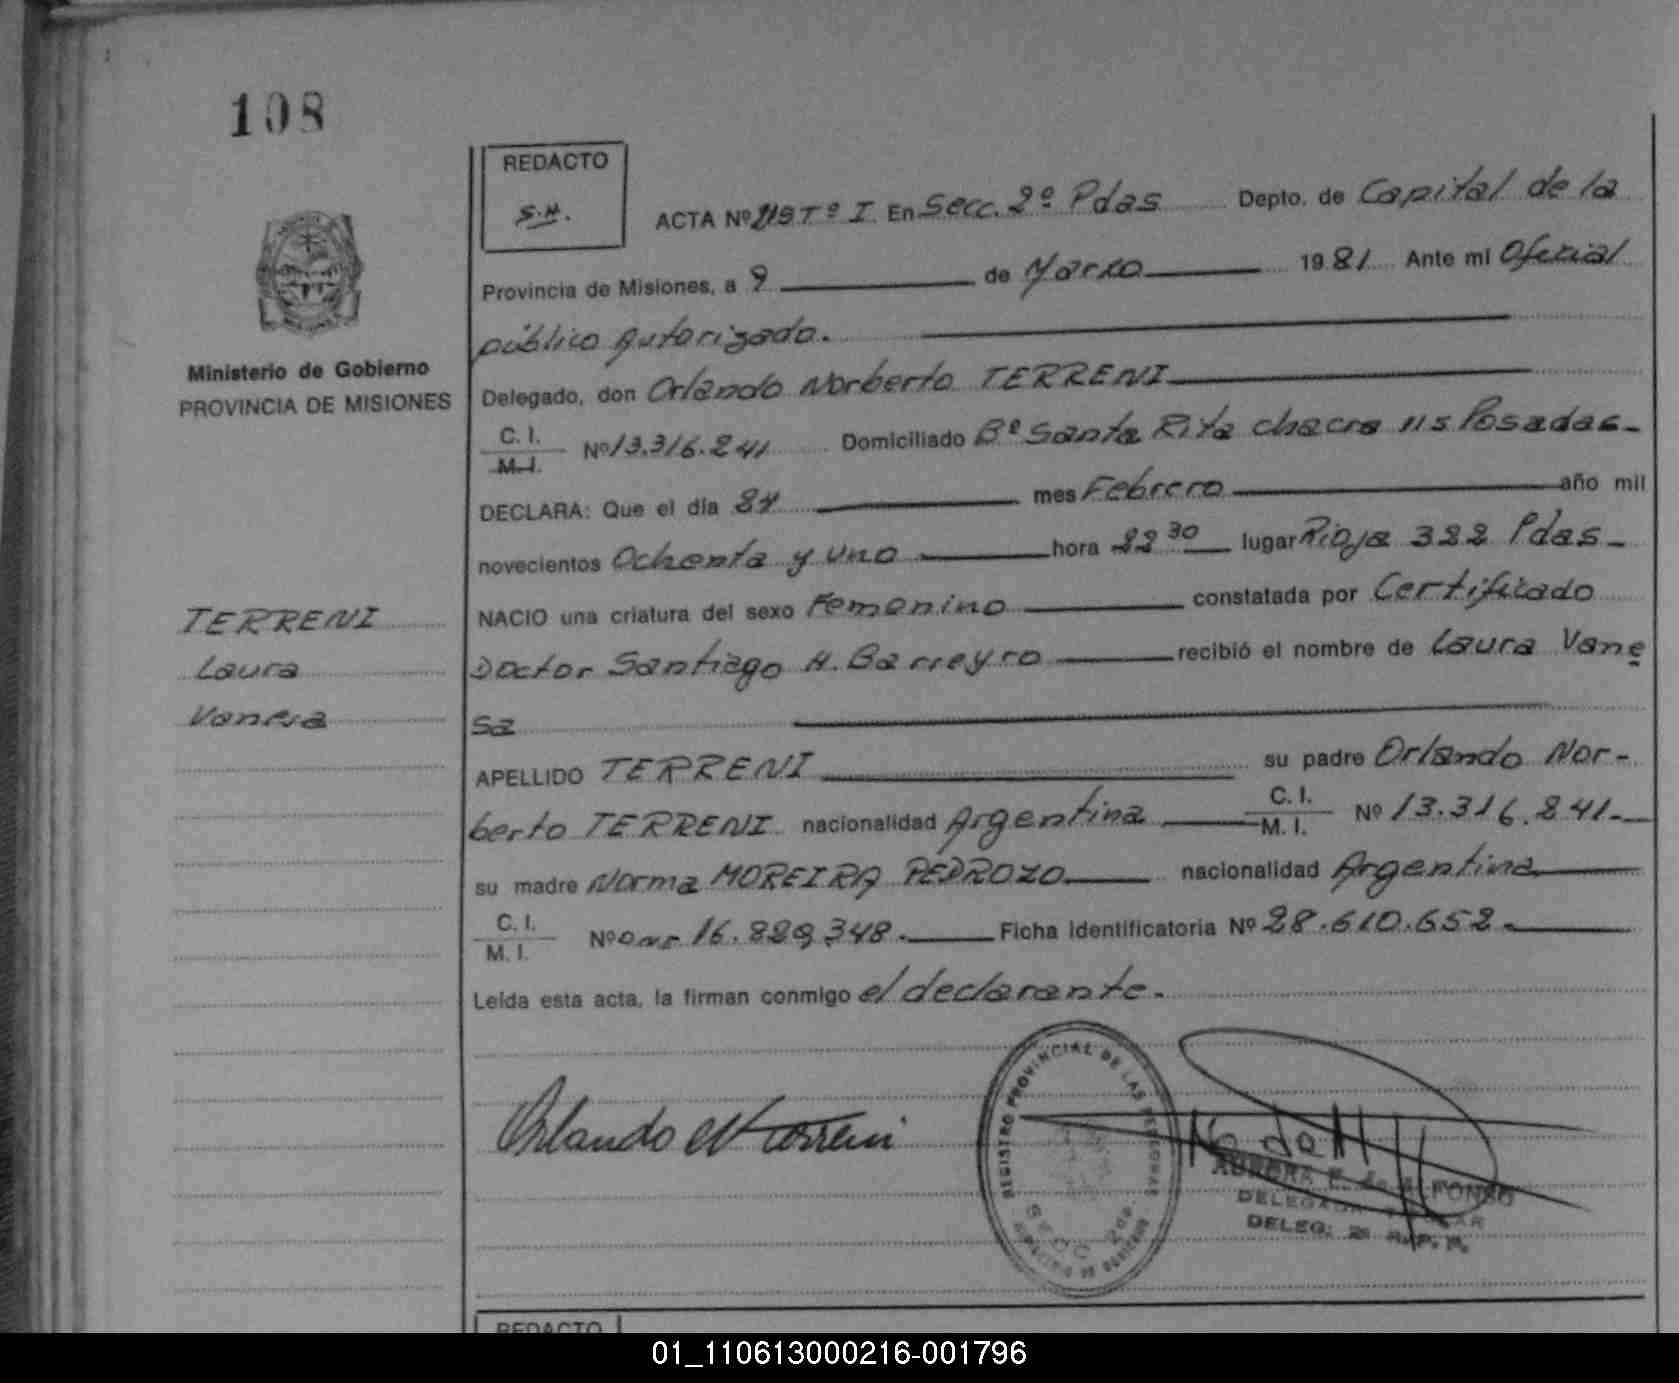 108
REDACTO
S.H.
ACTA Nº 119 Tº I En Secc. 2º Pdas Depto. de Capital de la
Provincia de Misiones, a 9 de Marzo 1981 Ante mi Oficial
público Autorizado.
Ministerio de Gobierno
PROVINCIA DE MISIONES
Delegado, don Orlando Norberto TERRENI
C. I.
M. I.
Nº 13.316.241 Domiciliado Bº Santa Rita chacra 115 Posadas-
DECLARA: Que el día 24 mes Febrero año mil
novecientos Ochenta y uno hora 22 30 lugar Rioja 322 Pdas-
TERRENI
Laura
Vanesa
NACIO una criatura del sexo Femenino constatada por Certificado
Doctor Santiago H. Barreyro recibió el nombre de Laura Vane
sa
APELLIDO TERRENI su padre Orlando Nor-
berto TERRENI nacionalidad Argentina C. I. M. I. Nº 13.316.241.-
su madre Norma MOREIRA PEDROZO nacionalidad Argentina
C. I.
M. I.
Nº 16.829.348.- Ficha identificatoria Nº 28.610.652.-
Leída esta acta, la firman conmigo el declarante.
Orlando N Terreni
REGISTRO PROVINCIAL DE LAS PERSONAS
SECC 2da.
AURORA E. de ALFONSO
DELEGADA TITULAR
DELEG: 2ª R. P. P.
REDACTO
01_110613000216-001796